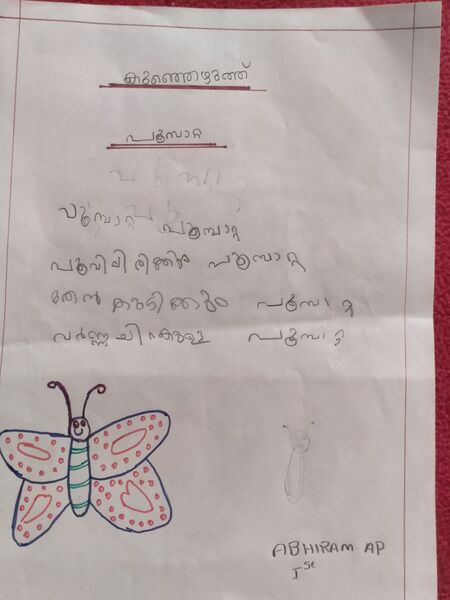 കുഞ്ഞെഴുത്ത്
പൂമ്പാറ്റ
പൂമ്പാറ്റ പൂമ്പാറ്റ
പൂവിലിരിക്കും പൂമ്പാറ്റ
തേൻ കുടിക്കും പൂമ്പാറ്റ
വർണ്ണചിറകുള്ള പൂമ്പാറ്റ
ABHIRAM AP
I st